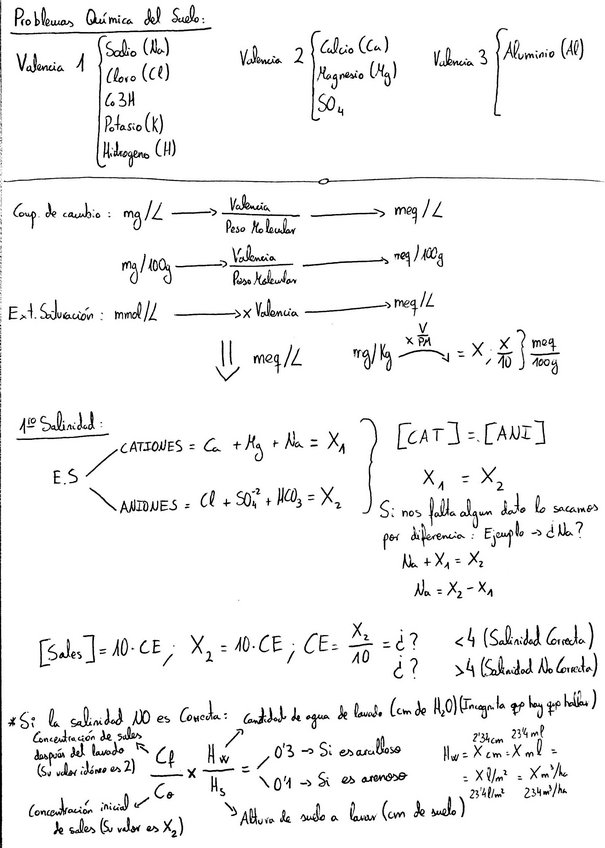 Problemas Química del Suelo:
Valencia 1 { Sodio (Na)
Cloro (Cl)
Co3H
Potasio (K)
Hidrogeno (H)
Valencia 2 { Calcio (Ca)
Magnesio (Mg)
SO4
Valencia 3 { Aluminio (Al)
Comp. de cambio: mg/L → Valencia / Peso Molecular → meq/L
mg/100g → Valencia / Peso Molecular → meq/100g
Ext. Saturación: mmol/L → x Valencia → meq/L
⇓ meq/L
mg/Kg x V/PM → = X ; X/10 } meq/100g
1º Salinidad:
E.S
CATIONES = Ca + Mg + Na = X1
ANIONES = Cl + SO4^-2 + HCO3 = X2
[CAT] = [ANI]
X1 = X2
Si nos falta algun dato lo sacamos
por diferencia: Ejemplo → ¿Na?
Na + X1 = X2
Na = X2 - X1
[Sales] = 10·CE ; X2 = 10·CE ; CE = X2/10 = ¿?
<4 (Salinidad Correcta)
¿? >4 (Salinidad No Correcta)
*Si la salinidad NO es Correcta: Cantidad de agua de lavado (cm de H2O) (Incognita que hay que hallar)
Concentración de sales
después del lavado
(Su valor idóneo es 2)
Cf/Co x Hw/Hs =
0'3 → Si es arcilloso
0'1 → Si es arenoso
Concentración inicial
de sales (Su valor es X2)
Altura de suelo a lavar (cm de suelo)
2'34cm 234ml
Hw = X cm = X ml =
= X l/m² = X m³/ha
23'4l/m² 234m³/ha